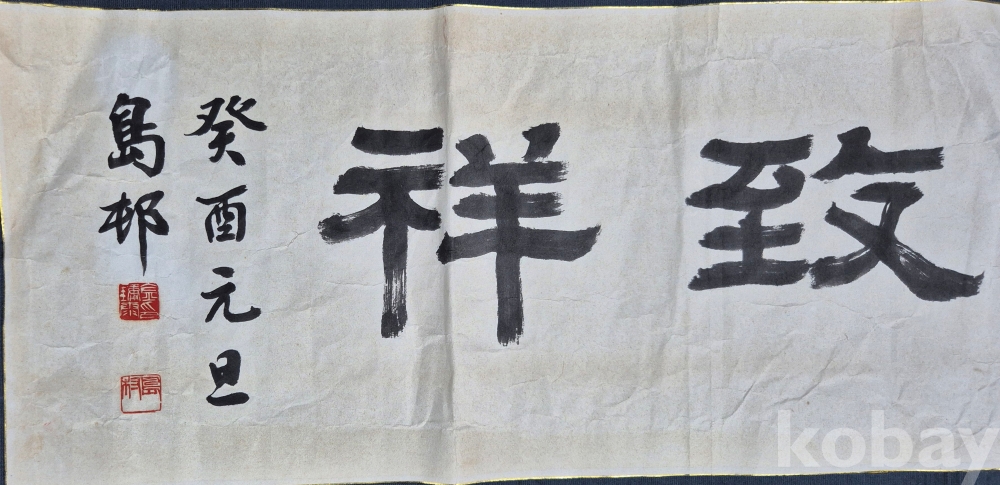 致祥
癸酉元旦
島邨
kobay